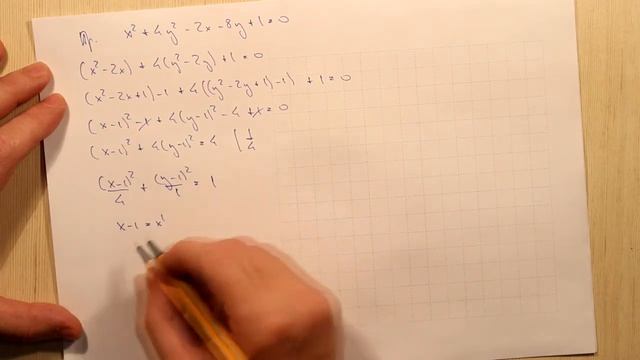 Пр. x² + 4y² - 2x - 8y + 1 = 0
(x² - 2x) + 4(y² - 2y) + 1 = 0
(x² - 2x + 1) - 1 + 4((y² - 2y + 1) - 1) + 1 = 0
(x - 1)² - 1 + 4(y - 1)² - 4 + 1 = 0
(x - 1)² + 4(y - 1)² = 4 | 1/4
(x - 1)²/4 + (y - 1)²/1 = 1
x - 1 = x'